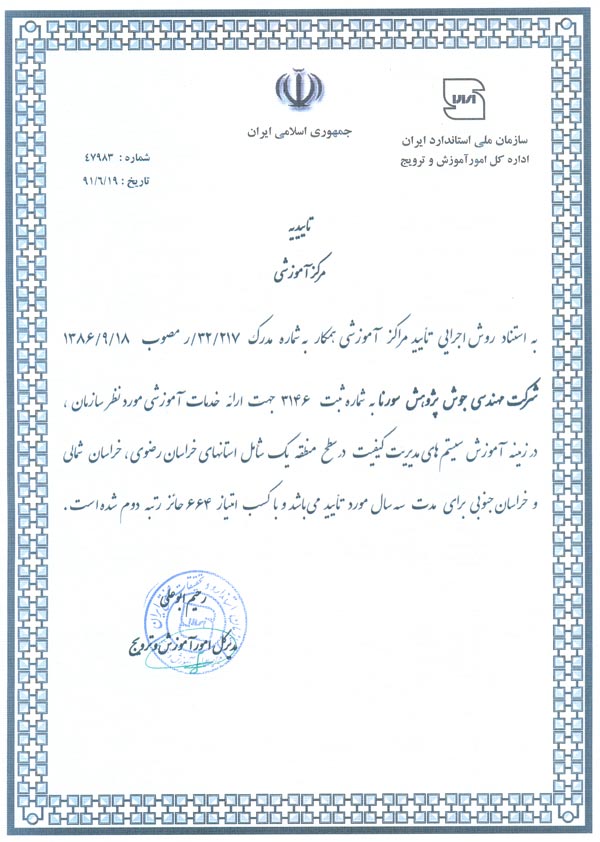 جمهوری اسلامی ایران
سازمان ملی استاندارد ایران
اداره کل امور آموزش و ترویج
شماره : ۴۷۹۸۳
تاریخ : ۹۱/۶/۱۹
تاییدیه
مرکز آموزشی
به استناد روش اجرایی تأیید مراکز آموزشی همکار به شماره مدرک ۳۲/۲۱۷/ر مصوب ۱۳۸۶/۹/۱۸
شرکت مهندسی جوش پژوهش سورنا به شماره ثبت ۳۱۴۶ جهت ارائه خدمات آموزشی مورد نظر سازمان ،
در زمینه آموزش سیستم های مدیریت کیفیت در سطح منطقه یک شامل استانهای خراسان رضوی، خراسان شمالی
و خراسان جنوبی برای مدت سه سال مورد تأیید می باشد و با کسب امتیاز ۶۶۴ حائز رتبه دوم شده است.
رحیم ابوعلی
مدیرکل امور آموزش و ترویج